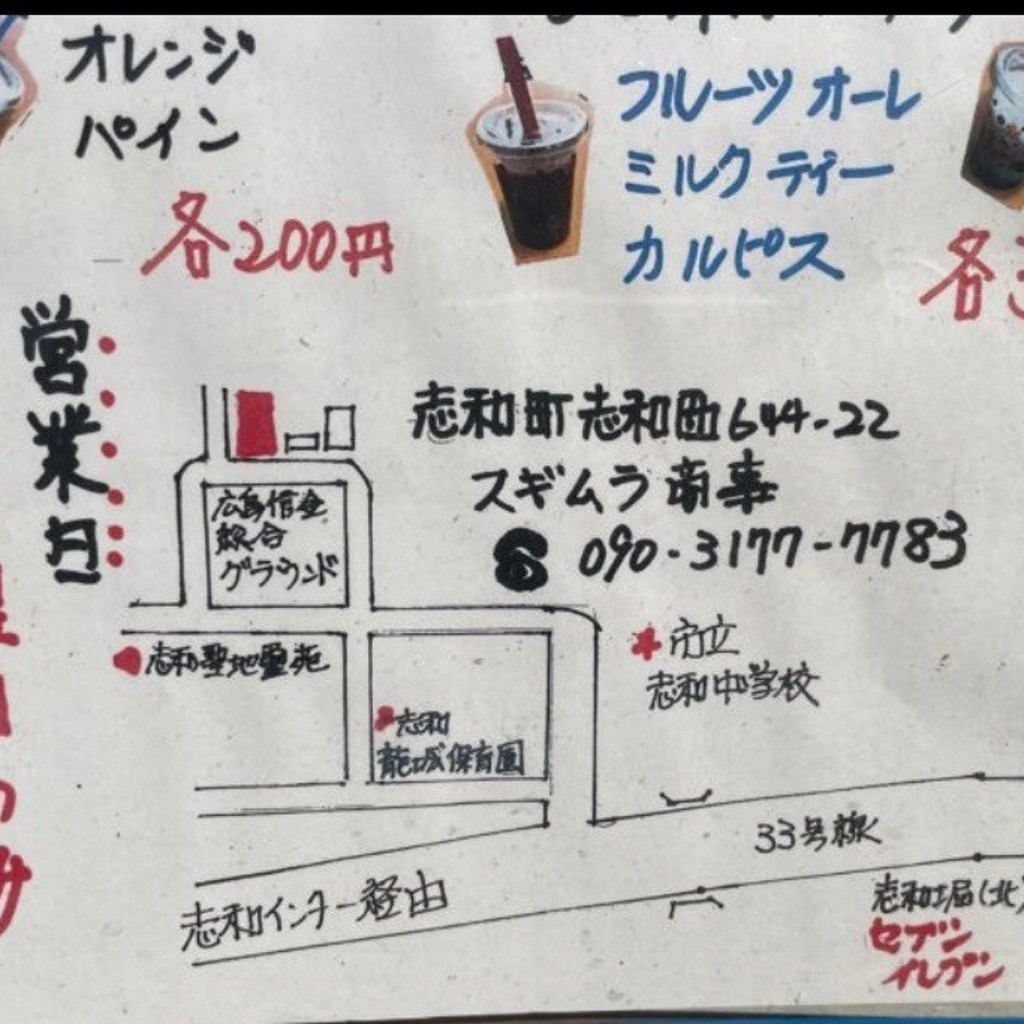 オレンジ
パイン
各200円
フルーツオーレ
ミルクティー
カルピス
各
営業日
志和町志和西644-22
スギムラ商事
090-3177-7783
広島信金
総合
グラウンド
志和聖地霊苑
市立
志和中学校
志和
龍城保育園
33号線
志和インター経由
志和堀(北)
セブン
イレブン